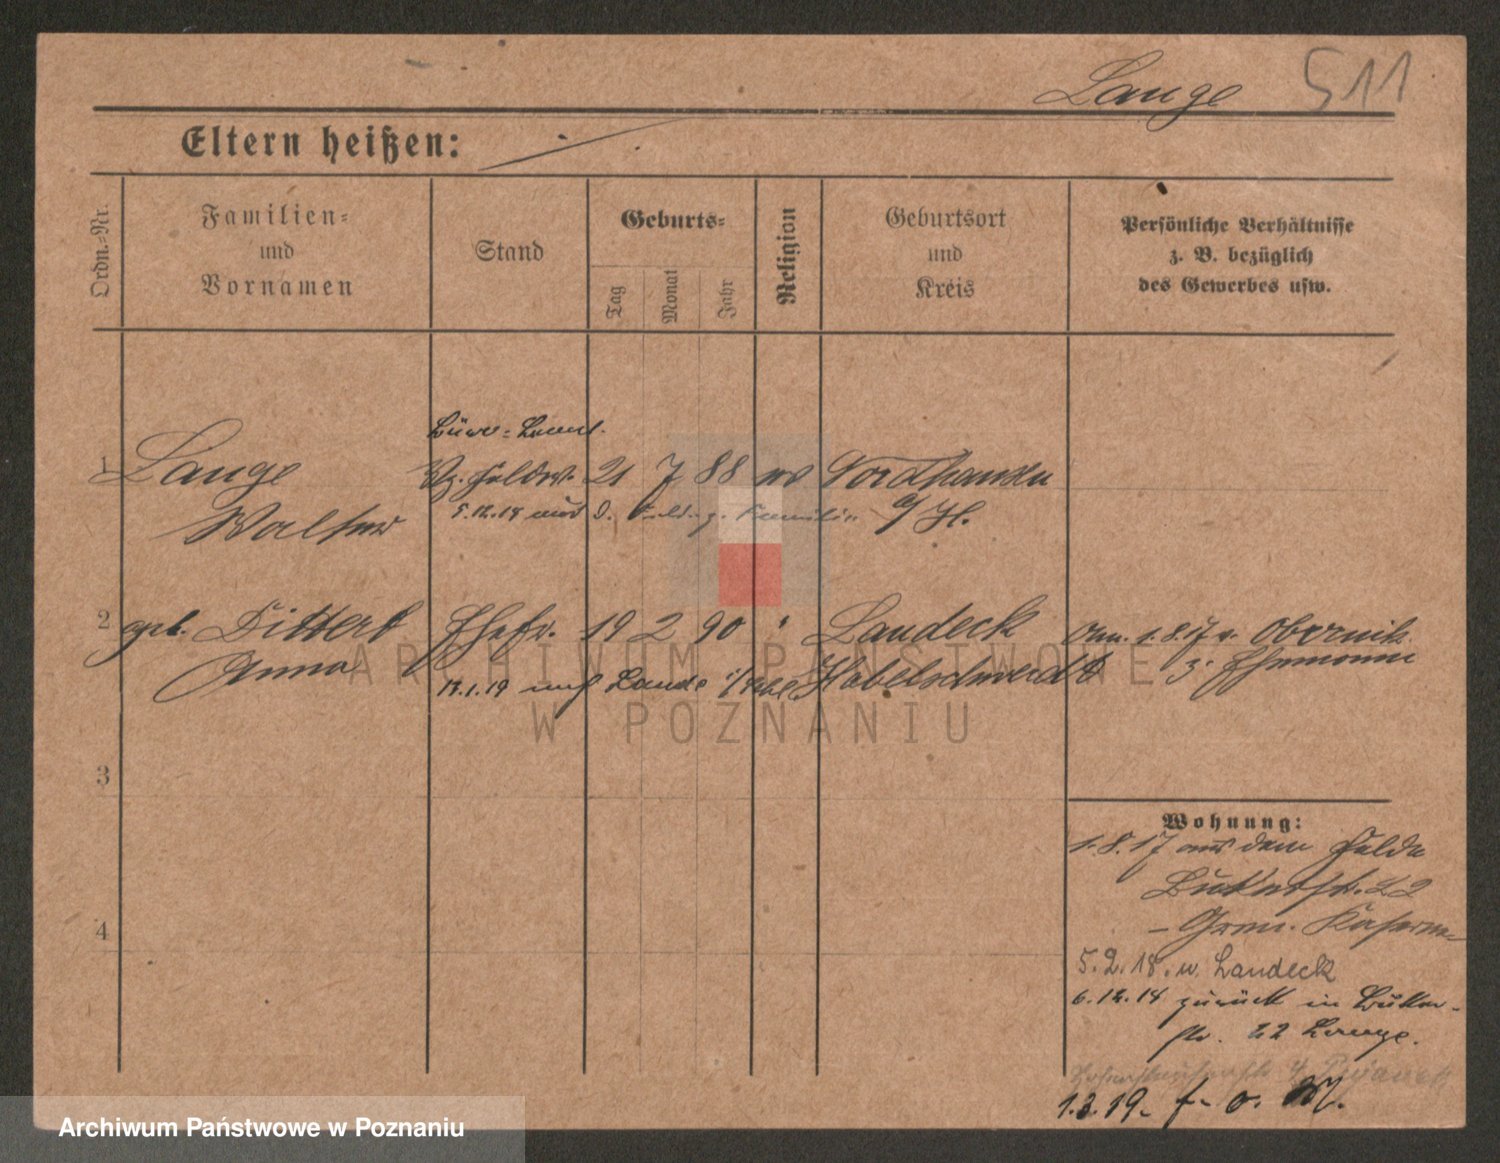 Lange 511
Eltern heißen:
Ordn.-Nr.
Familien-
und
Vornamen
Stand
Geburts-
Tag
Monat
Jahr
Religion
Geburtsort
und
Kreis
Persönliche Verhältnisse
z. B. bezüglich
des Gewerbes usw.
1 Lange Vz. Feldw. 21 7 88 ev Nordhausen
Walter
a/H.
5.12.18 aus d. Felde z. Familie
2 geb. Dittert Ehefr. 19 2 90 " Landeck
Anna
13.1.19 auf Lande
Habelschwerdt
Anm. 1.8.17 v. Obornik
z. Ehemann
3
4
Wohnung:
1.8.17 aus dem Felde
Bukerstr. 22
- Gren. Kaserne
5.2.18. n. Landeck
6.12.18 zurück in Buker-
str. 22 Lange.
1.3.19. f. o. M.
ARCHIWUM PAŃSTWOWE
W POZNANIU
Archiwum Państwowe w Poznaniu